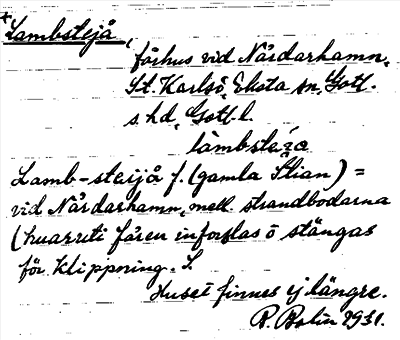 *Lambstejå,
fårhus vid Nårdarhamn,
St. Karlsö, Eksta sn, Gotl.
s. hd, Gotl. l.
làmbstéi̯a
Lamb-steijå f. (gamla Stian) =
vid Nårdarhamn, mell. strandbodarna
(huarriti fåren inforslas ö stängas
för klippning. S.
Huset finnes ej längre.
R. Bolin 1931.